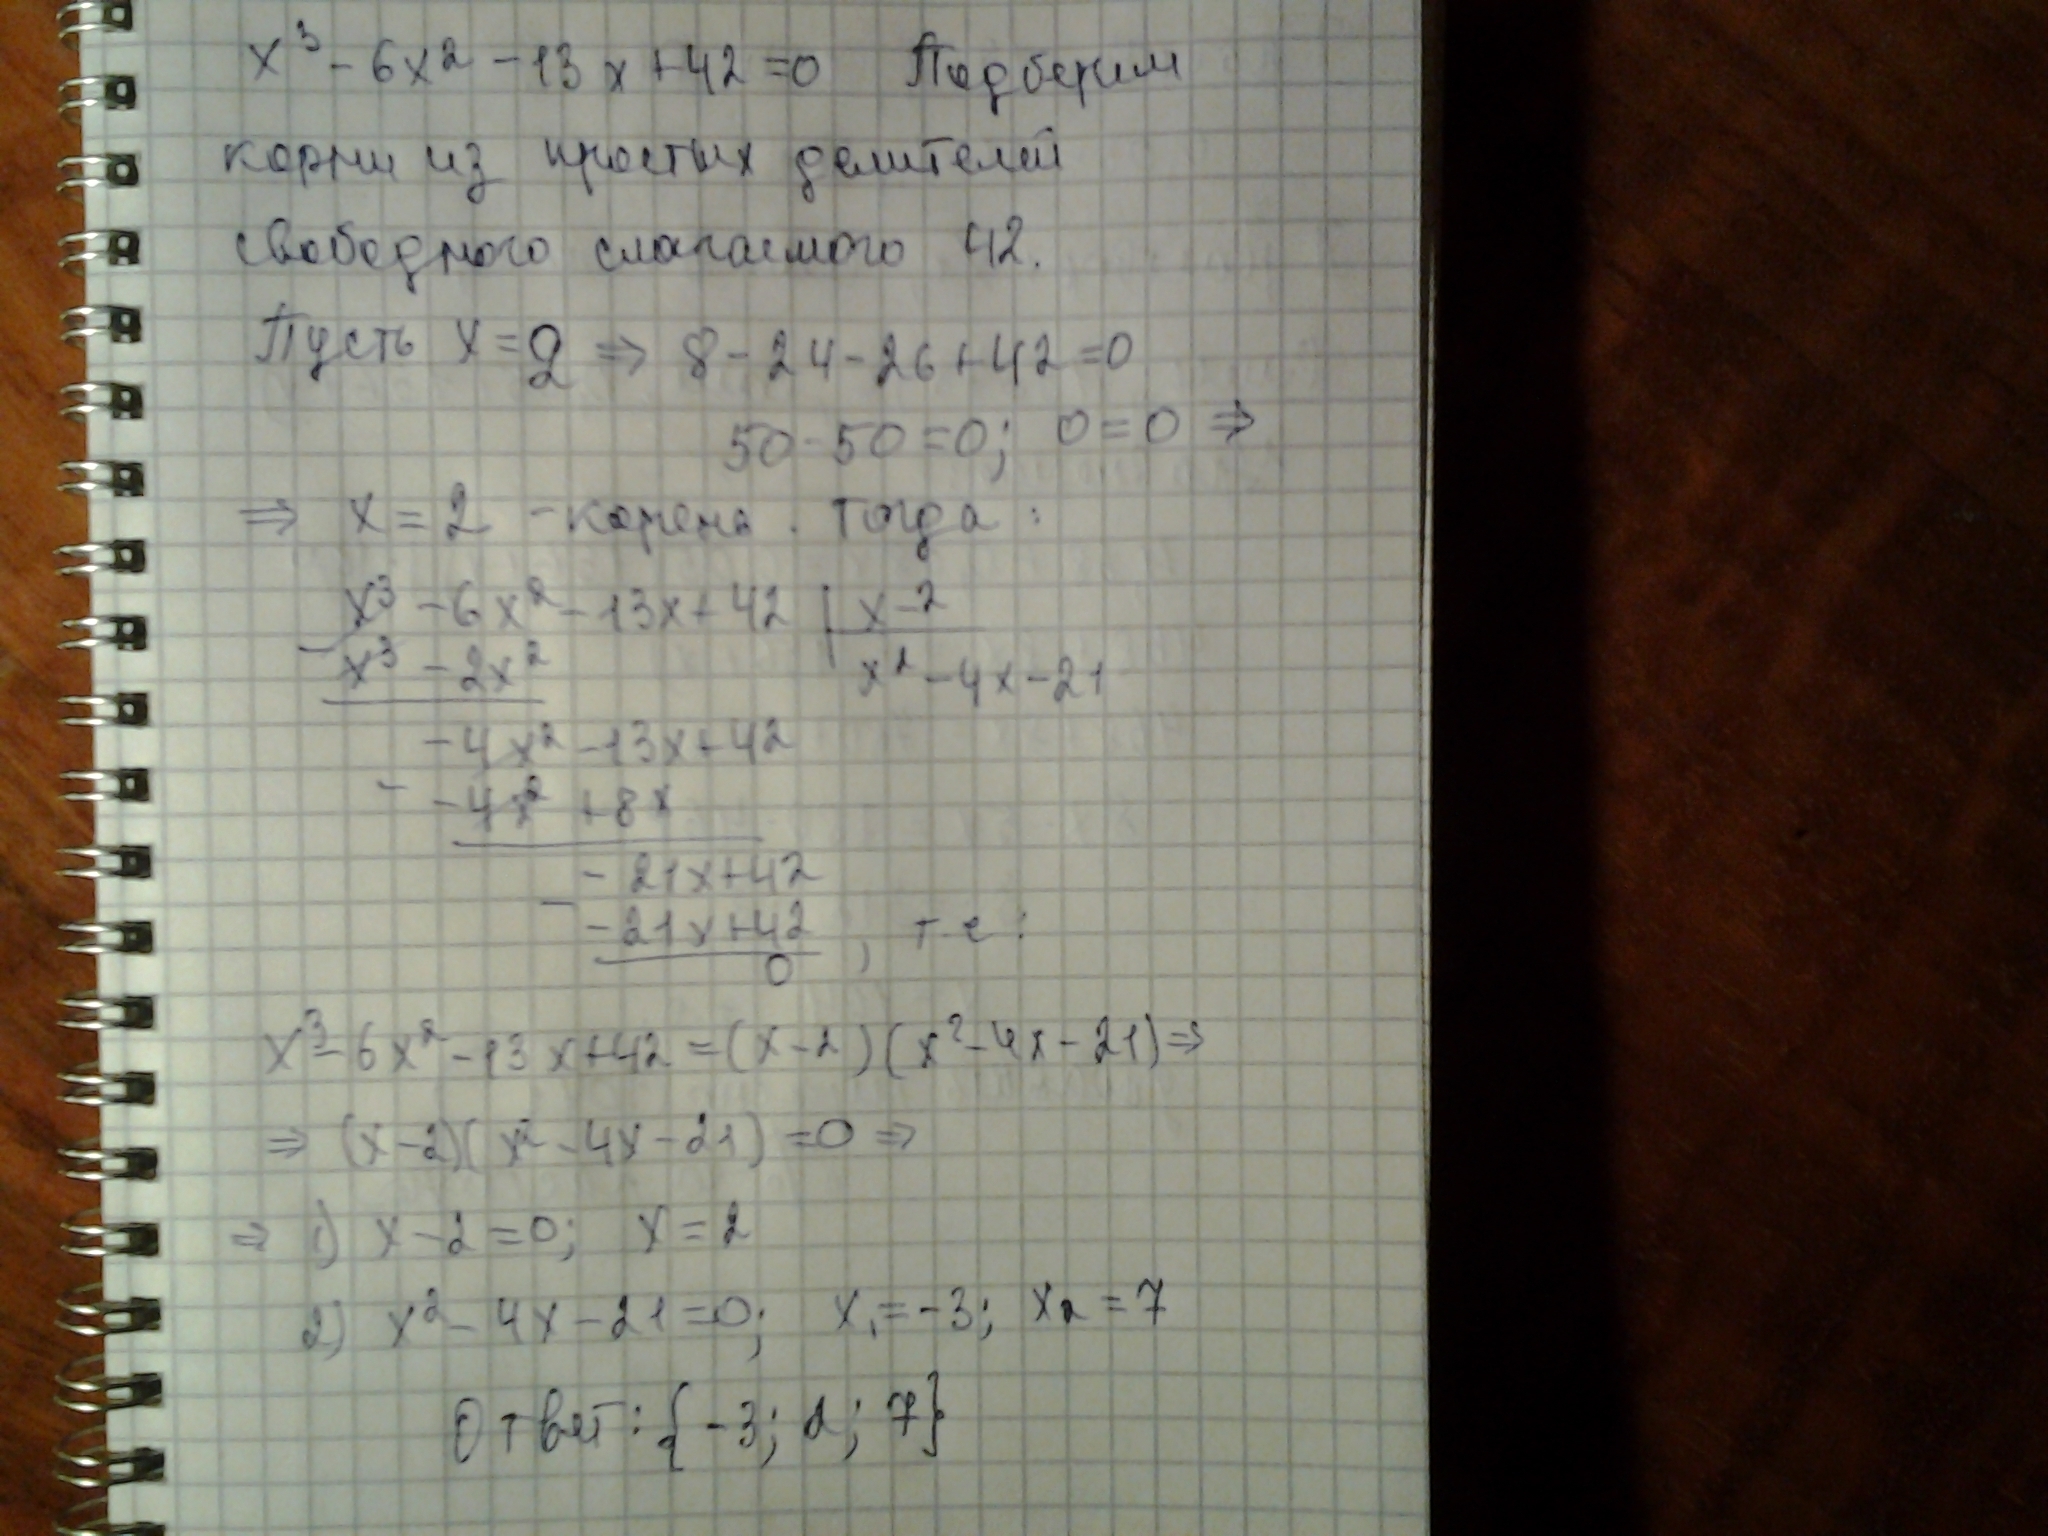 x³ - 6x² - 13x + 42 = 0 Подберем
корни из простых делителей
свободного слагаемого 42.
Пусть x = 2 ⇒ 8 - 24 - 26 + 42 = 0
50 - 50 = 0; 0 = 0 ⇒
⇒ x = 2 - корень. Тогда:
x³ - 6x² - 13x + 42 | x - 2
- x³ - 2x² | x² - 4x - 21
-4x² - 13x + 42
- -4x² + 8x
-21x + 42
- -21x + 42, т.е:
0
x³ - 6x² - 13x + 42 = (x - 2)(x² - 4x - 21) ⇒
⇒ (x - 2)(x² - 4x - 21) = 0 ⇒
⇒ 1) x - 2 = 0; x = 2
2) x² - 4x - 21 = 0; x₁ = -3; x₂ = 7
Ответ: {-3; 2; 7}